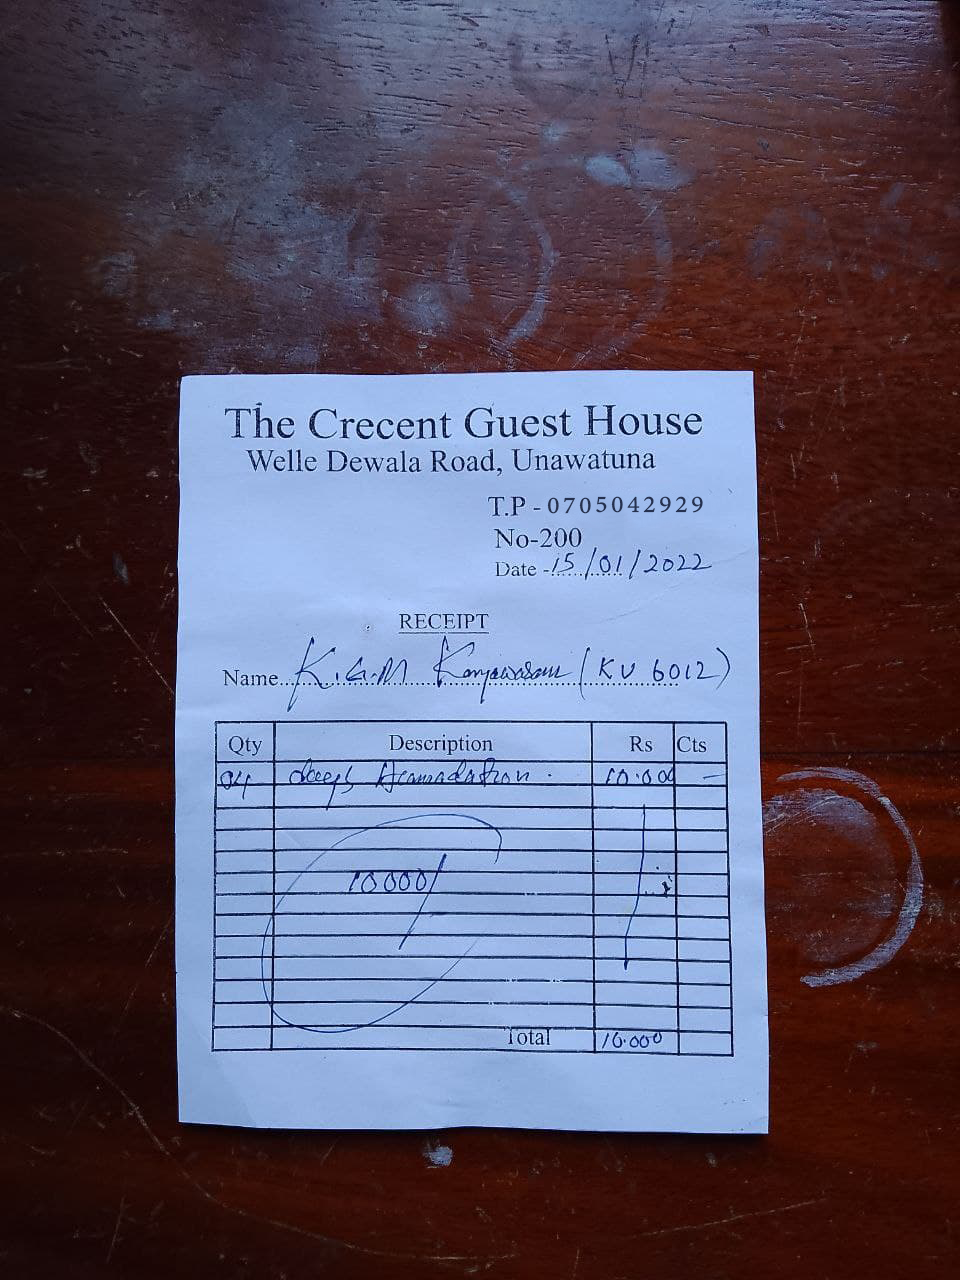 The Crecent Guest House
Welle Dewala Road, Unawatuna
T.P - 0705042929
No-200
Date - 15/01/2022
RECEIPT
Name K.G.M (KV 6012)
Qty Description Rs Cts
04 days 10.000 —
10000/
Total 10.000